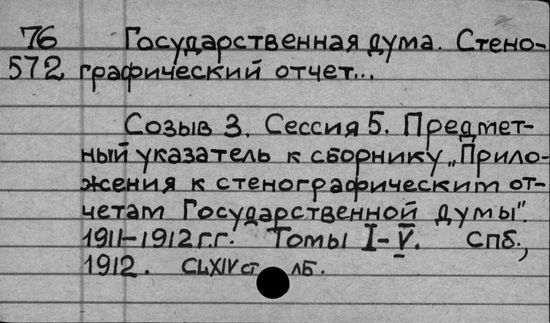 76 Государственная дума. Стено-
572 графический отчет...
Созыв 3. Сессия 5. Предмет-
ный указатель к сборнику „Прило-
жения к стенографическим от-
четам Государственной думы".
1911-1912 г.г. Томы I-V. Спб.,
1912. CLXIV ст лб.